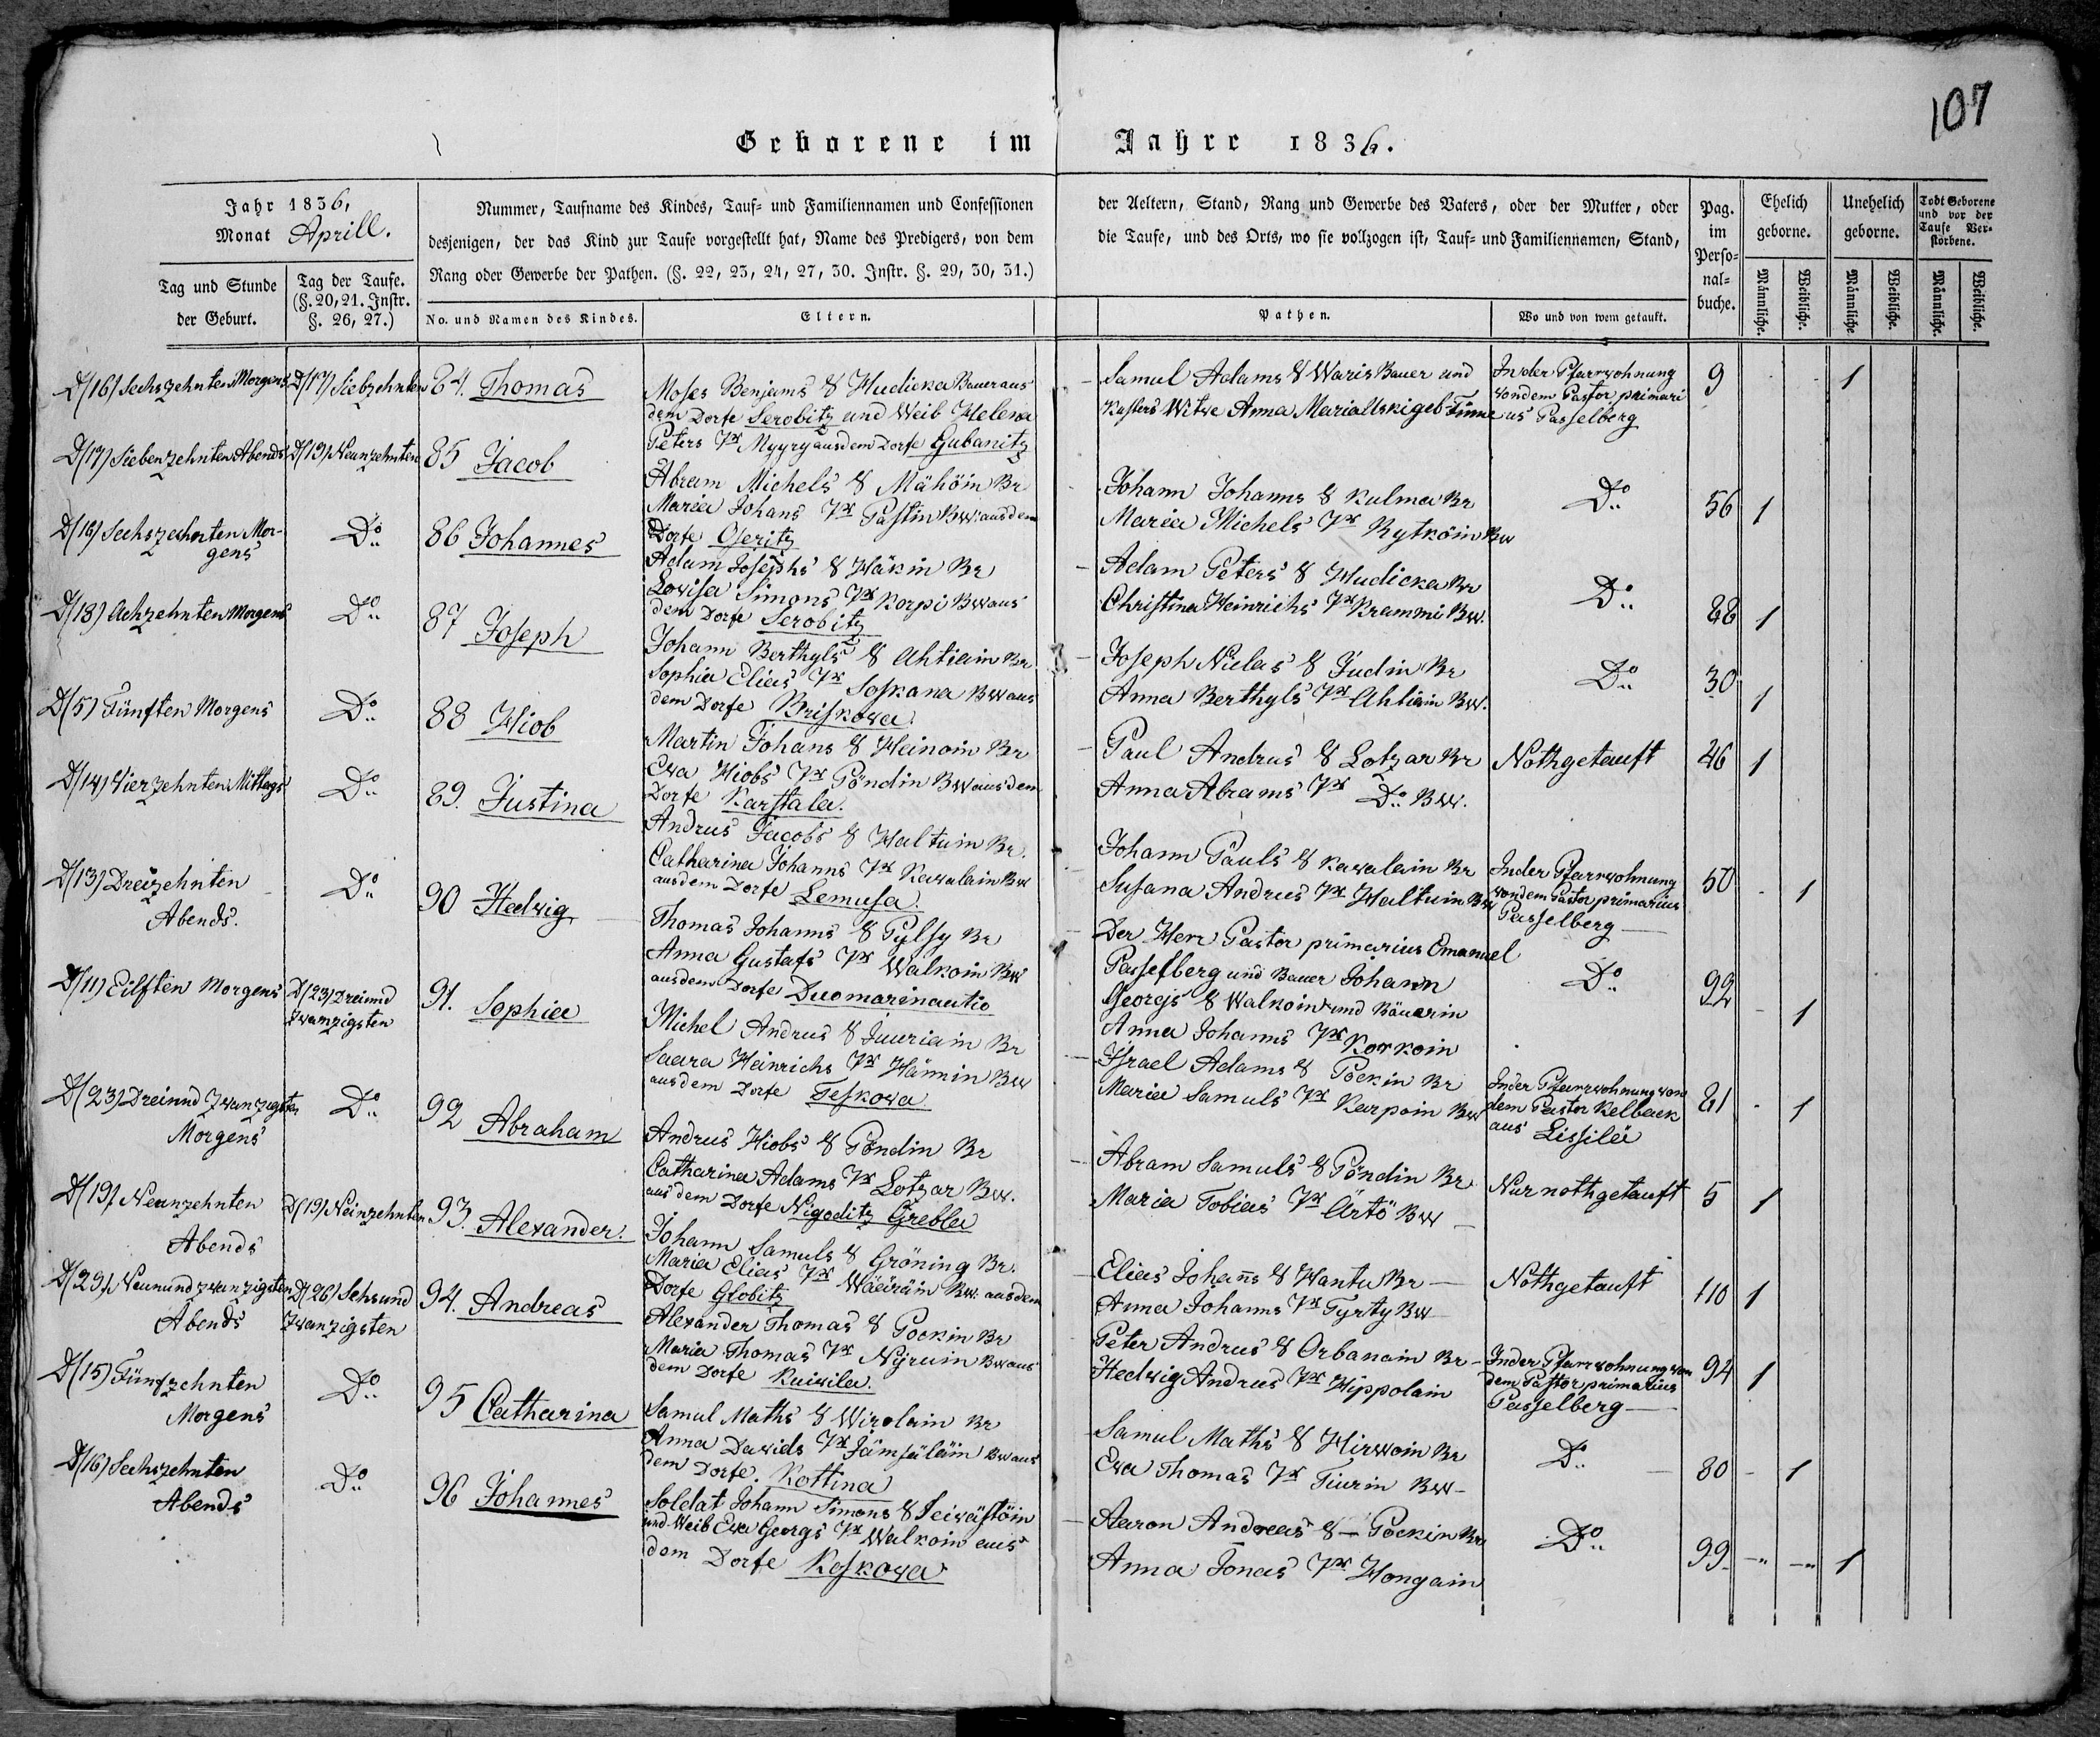 107
Geborene im Jahre 1836.
Jahr 1836,
Monat Aprill.
Tag und Stunde
der Geburt.
Tag der Taufe.
(§. 20, 21. Instr.
§. 26, 27.)
Nummer, Taufname des Kindes, Tauf- und Familiennamen und Confessionen der Aeltern, Stand, Rang und Gewerbe des Vaters, oder der Mutter, oder
desjenigen, der das Kind zur Taufe vorgestellt hat, Name des Predigers, von dem die Taufe, und des Orts, wo sie vollzogen ist, Tauf- und Familiennamen, Stand,
Rang oder Gewerbe der Pathen. (§. 22, 23, 24, 27, 30. Instr. §. 29, 30, 31.)
No. und Namen des Kindes.
Eltern.
Pathen.
Wo und von wem getauft.
Pag.
im
Perso-
nal-
buche.
Ehelich
geborne.
Unehelich
geborne.
Todt Geborene
und vor der
Taufe Ver-
storbene.
Männliche.
Weibliche.
Männliche.
Weibliche.
Männliche.
Weibliche.
D/16/ Sechszehnten Morgens
D/17/ Siebzehnten
84. Thomas
Moses Benjams S Hudicka Bauer aus
dem Dorfe Serobitz und Weib Helena
Peters Tr Myyry aus dem Dorfe Gubanitz
Samul Adams S Waris Bauer und
Küsters Witwe Anna Maria
In der Pfarrwohnung
von dem Pastor primari
us Passelberg
9
1
D/17/ Siebenzehnten Abends
D/19/ Neunzehnten
85 Jacob
Abram Michels S Mähöin Br
Maria Johans Tr Pastin Bw: aus dem
Dorfe Oseritz
Johann Johanns S Kulma Br
Maria Michels Tr Rytköin Bw
Do
56
1
D/16/ Sechszehnten Mor-
gens
Do
86 Johannes
Adam Josephs S Häkin Br
Lovisa Simons Tr Korpi Bw aus
dem Dorfe Serobitz
Adam Peters S Hudicka Br
Christina Heinrichs Tr Krammi Bw.
Do
88
1
D/18/ Achzehnten Morgens
Do
87 Joseph
Johann Berthyls S Ahtiain Br
Sophia Elias Tr Soskana Bw aus
dem Dorfe Briskowa
Joseph Niclas S Judin Br
Anna Berthyls Tr Ahtiain Bw.
Do
30
1
D/5/ Fünften Morgens
Do
88 Hiob
Martin Johans S Heinoin Br
Ewa Hiobs Tr Pöndin Bw aus dem
Dorfe Karstala.
Paul Andrus S Lotzar Br
Anna Abrams Tr Do Bw.
Nothgetauft
46
1
D/14/ Vierzehnten Mittags
Do
89. Justina
Andrus Jacobs S Haltuin Br.
Catharina Johanns Tr Kawalain Bw
aus dem Dorfe Lemusa.
Johann Pauls S Kawalain Br
Susana Andrus Tr Haltuin Bw
In der Pfarrwohnung
von dem Pastor primarius
Passelberg
50
1
D/13/ Dreizehnten
Abends.
Do
90 Hedwig
Thomas Johanns S Pylsy Br
Anna Gustafs Tr Walkoin Bw
aus dem Dorfe Duomarinautio
Der Herr Pastor primarius Emanuel
Passelberg und Bauer Johann
Georgs S Walkoin und Bäuerin
Anna Johanns Tr Korkoin
Do
92
1
D/11/ Eilften Morgens
D/23/ Dreiund
zwanzigsten
91. Sophia
Michel Andrus S Juuriain Br
Saara Heinrichs Tr Hännin Bw
aus dem Dorfe Teskowa
Israel Adams S Pöckin Br
Maria Samuls Tr Karpoin Bw
In der Pfarrwohnung von
dem Pastor Kelbaek
aus Lissilä
81
1
D/23/ Dreiund zwanzigsten
Morgens
Do
92 Abraham
Andrus Hiobs S Pöndin Br
Catharina Adams Tr Lotzar Bw.
aus dem Dorfe Nigoditz Grebla
Abram Samuls S Pöndin Br
Maria Tobias Tr Ärtö Bw
Nur nothgetauft
5
1
D/19/ Neunzehnten
Abends
D/19/ Neinzehnten
93. Alexander.
Johann Samuls S Gröning Br.
Maria Elias Tr Wäeiräin Bw. aus dem
Dorfe Globitz
Elias Johañs S Hantu Br
Anna Johanns Tr Tyrty Bw
Nothgetauft
110
1
D/29/ Neunund zwanzigsten
Abends
D/26/ Sehsund
zwanzigsten
94. Andreas
Alexander Thomas S Pockin Br
Maria Thomas Tr Nyruin Bw aus
dem Dorfe Kuiwila.
Peter Andrus S Orbanain Br
Hedwig Andrus Tr Hippolain
In der Pfarrwohnung von
dem Pastor primarius
Passelberg
94
1
D/15/ Fünfzehnten
Morgens
Do
95 Catharina
Samul Maths S Wirolain Br
Anna Davids Tr Jämsäläin Bw aus
dem Dorfe. Kottina
Samul Maths S Hirwoin Br
Ewa Thomas Tr Tiurin Bw
Do
80
1
D/16/ Sechszehnten
Abends
Do
96 Johannes
Soldat Johann Simons S Seiwästöin
und Weib Ewa Georgs Tr Walkoin aus
dem Dorfe Koskowa
Aaron Andreas S Pockin Br
Anna Jonas Tr Hongain
Do
99
1